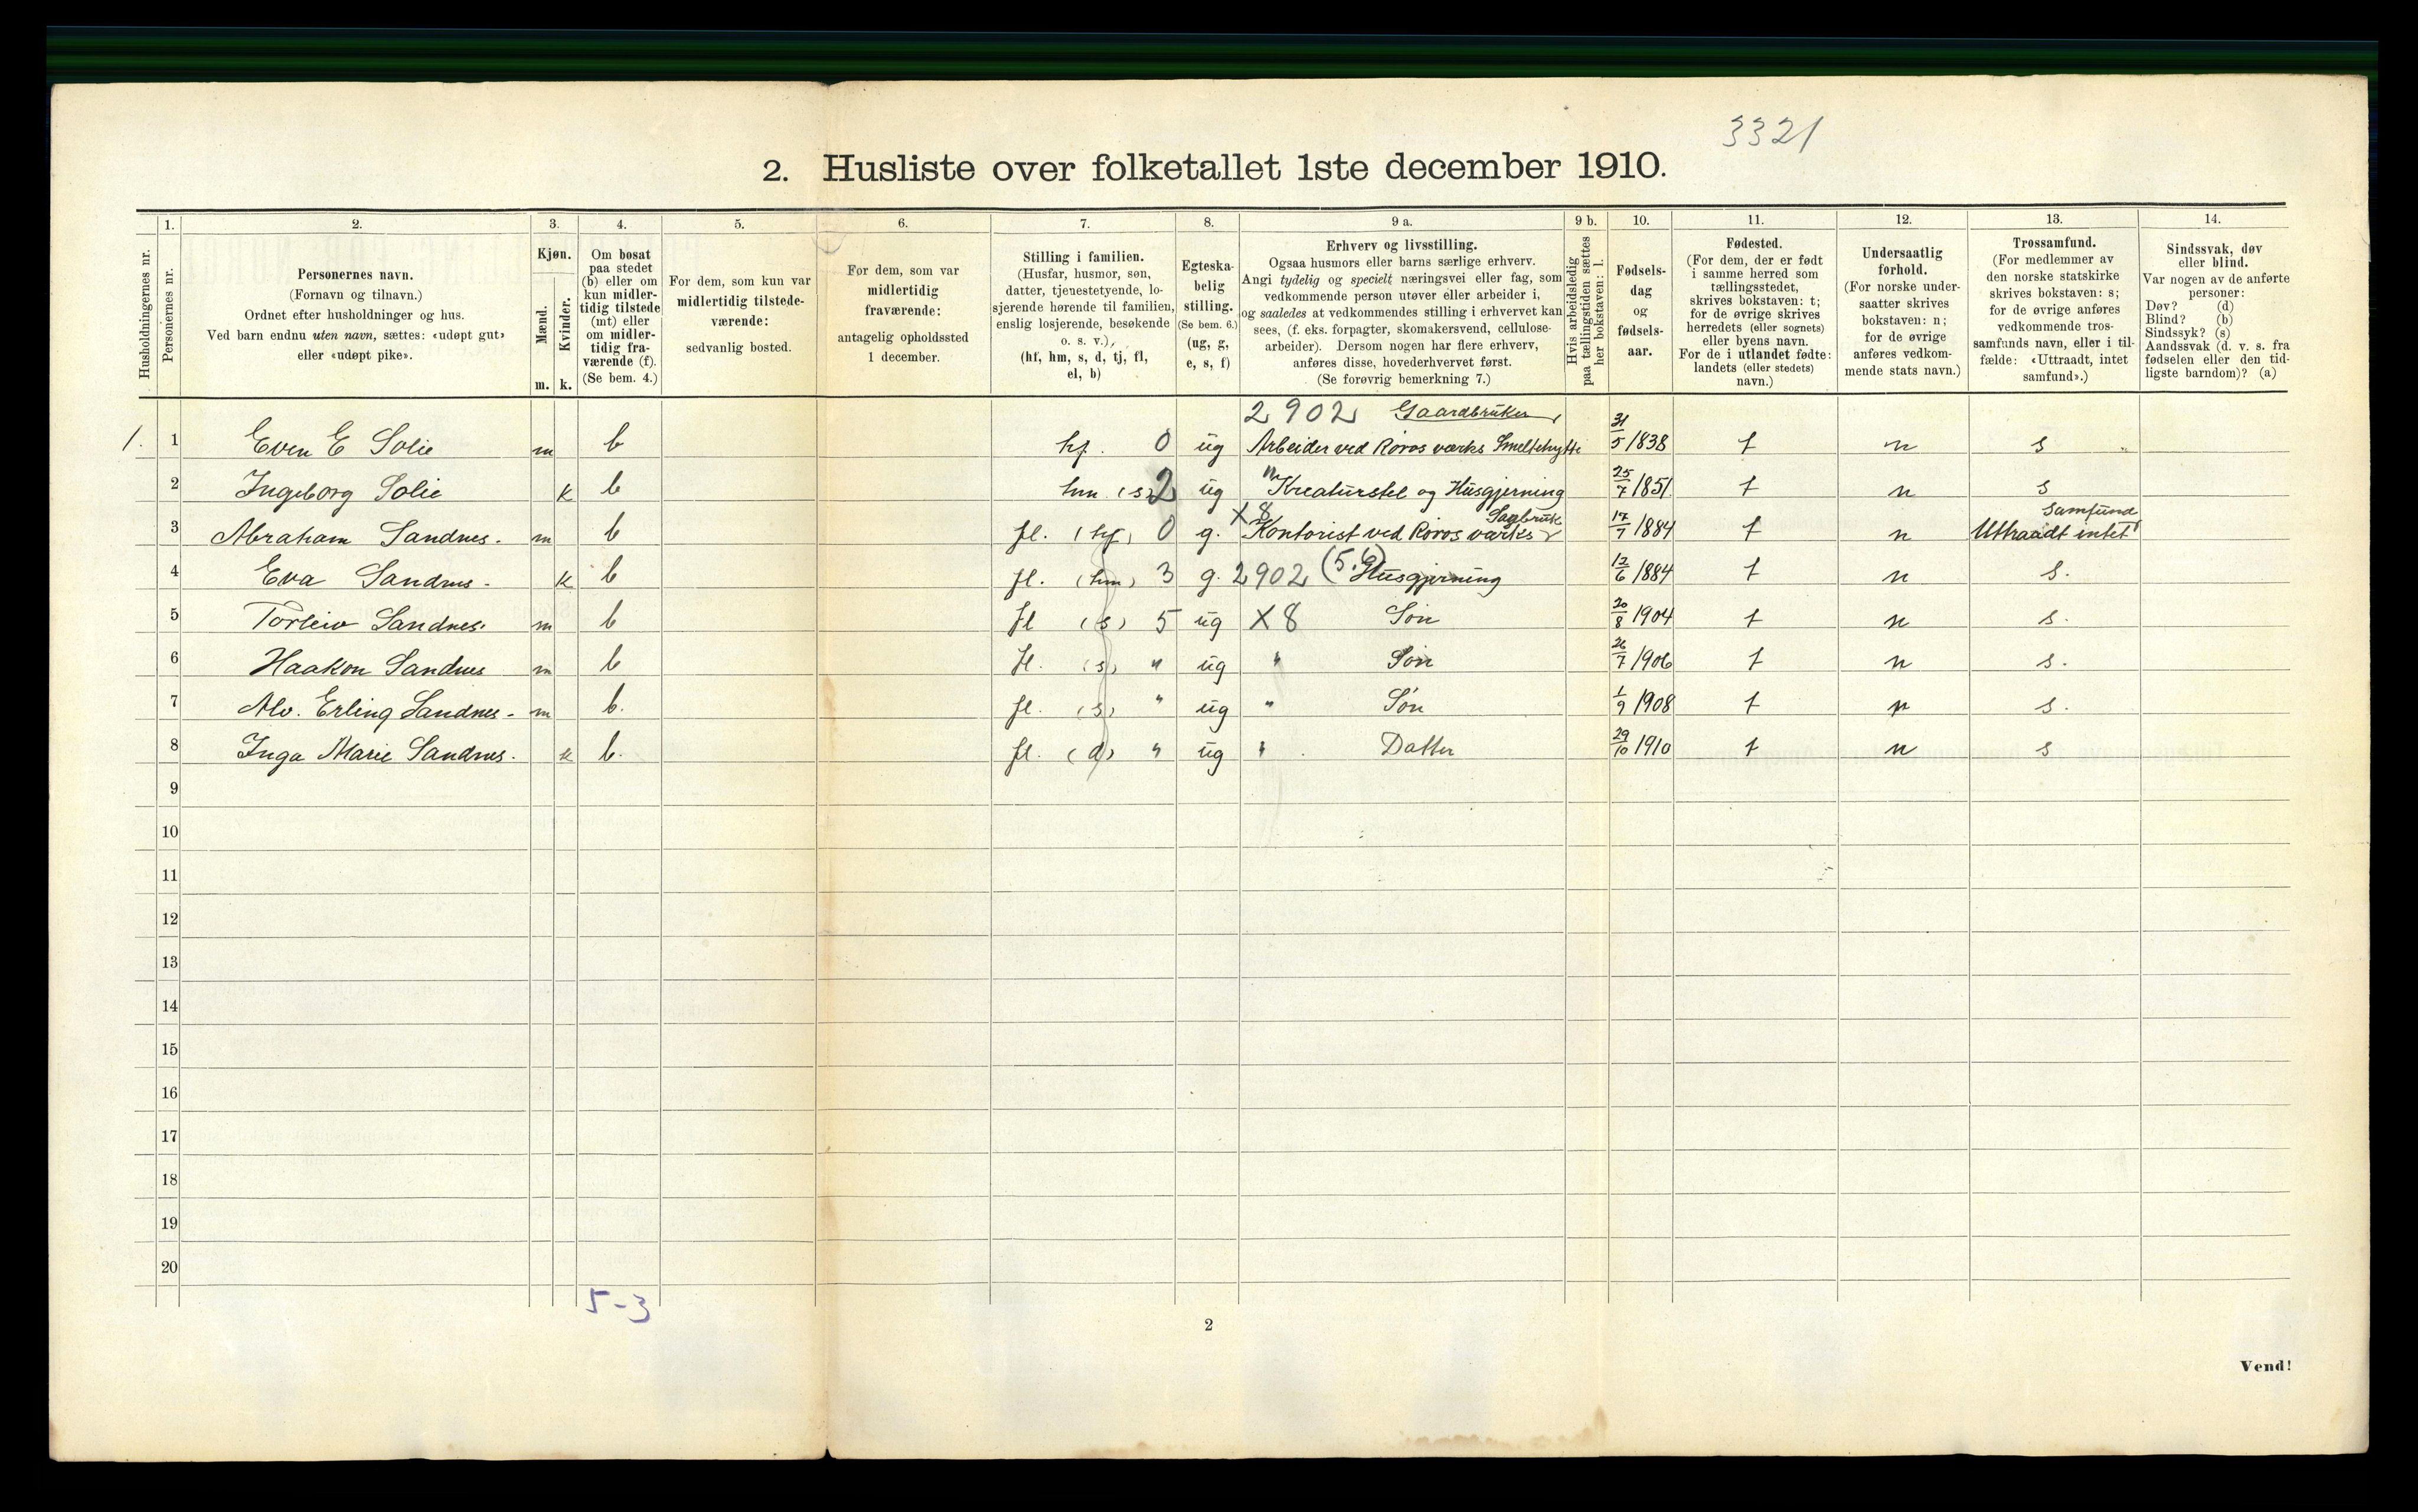 3321
2. Husliste over folketallet 1ste december 1910.
Husholdningernes nr.
1.
Personernes nr.
2.
Personernes navn.
(Fornavn og tilnavn.)
Ordnet efter husholdninger og hus.
Ved barn endnu uten navn, sættes: «udøpt gut»
eller «udøpt pike».
3.
Kjøn.
Mænd.
Kvinder.
m. k.
4.
Om bosat
paa stedet
(b) eller om
kun midler-
tidig tilstede
(mt) eller
om midler-
tidig fra-
værende (f).
(Se bem. 4.)
5.
For dem, som kun var
midlertidig tilstede-
værende:
sedvanlig bosted.
6.
For dem, som var
midlertidig
fraværende:
antagelig opholdssted
1 december.
7.
Stilling i familien.
(Husfar, husmor, søn,
datter, tjenestetyende, lo-
sjerende hørende til familien,
enslig losjerende, besøkende
o. s. v.)
(hf, hm, s, d, tj, fl,
el, b)
8.
Egteska-
belig
stilling.
(Se bem. 6.)
(ug, g,
e, s, f)
9 a.
Erhverv og livsstilling.
Ogsaa husmors eller barns særlige erhverv.
Angi tydelig og specielt næringsvei eller fag, som
vedkommende person utøver eller arbeider i,
og saaledes at vedkommendes stilling i erhvervet kan
sees, (f. eks. forpagter, skomakersvend, cellulose-
arbeider). Dersom nogen har flere erhverv,
anføres disse, hovederhvervet først.
(Se forøvrig bemerkning 7.)
9 b.
Hvis arbeidsledig
paa tællingstiden sættes
her bokstaven: l.
10.
Fødsels-
dag
og
fødsels-
aar.
11.
Fødested.
(For dem, der er født
i samme herred som
tællingsstedet,
skrives bokstaven: t;
for de øvrige skrives
herredets (eller sognets)
eller byens navn.
For de i utlandet fødte:
landets (eller stedets)
navn.)
12.
Undersaatlig
forhold.
(For norske under-
saatter skrives
bokstaven: n;
for de øvrige
anføres vedkom-
mende stats navn.)
13.
Trossamfund.
(For medlemmer av
den norske statskirke
skrives bokstaven: s;
for de øvrige anføres
vedkommende tros-
samfunds navn, eller i til-
fælde: «Uttraadt, intet
samfund».)
14.
Sindssvak, døv
eller blind.
Var nogen av de anførte
personer:
Døv? (d)
Blind? (b)
Sindssyk? (s)
Aandssvak (d. v. s. fra
fødselen eller den tid-
ligste barndom)? (a)
2902 Gaardbruker
1. 1 Even E Solie m b hf. 0 ug Arbeider ved Røros værks Smeltehytte 31/5 1838 t n s
2 Ingeborg Solie k b hm. (s) 2 ug " Kreaturstel og Husgjerning 25/7 1851 t n s
X8 Sagbruk samfund
3 Abraham Sandnes. m b fl. (hf) 0 g. Kontorist ved Røros værks 17/7 1884 t n Uttraadt intet
4 Eva Sandnes. k b fl. (hm) 3 g. 2902 (5.6) Husgjerning 12/6 1884 t n s.
5 Torleiv Sandnes. m b fl (s) 5 ug X8 Søn 20/8 1904 t n s.
6 Haakon Sandnes m b fl. (s) " ug " Søn 26/7 1906 t n s.
7 Alv. Erling Sandnes. m b. fl. (s) " ug " Søn 1/9 1908 t n s.
8 Inga Marie Sandnes. k b. fl. (d) " ug " Datter 29/10 1910 t n s
9
10
11
12
13
14
15
16
17
18
19
20
5-3
2
Vend!